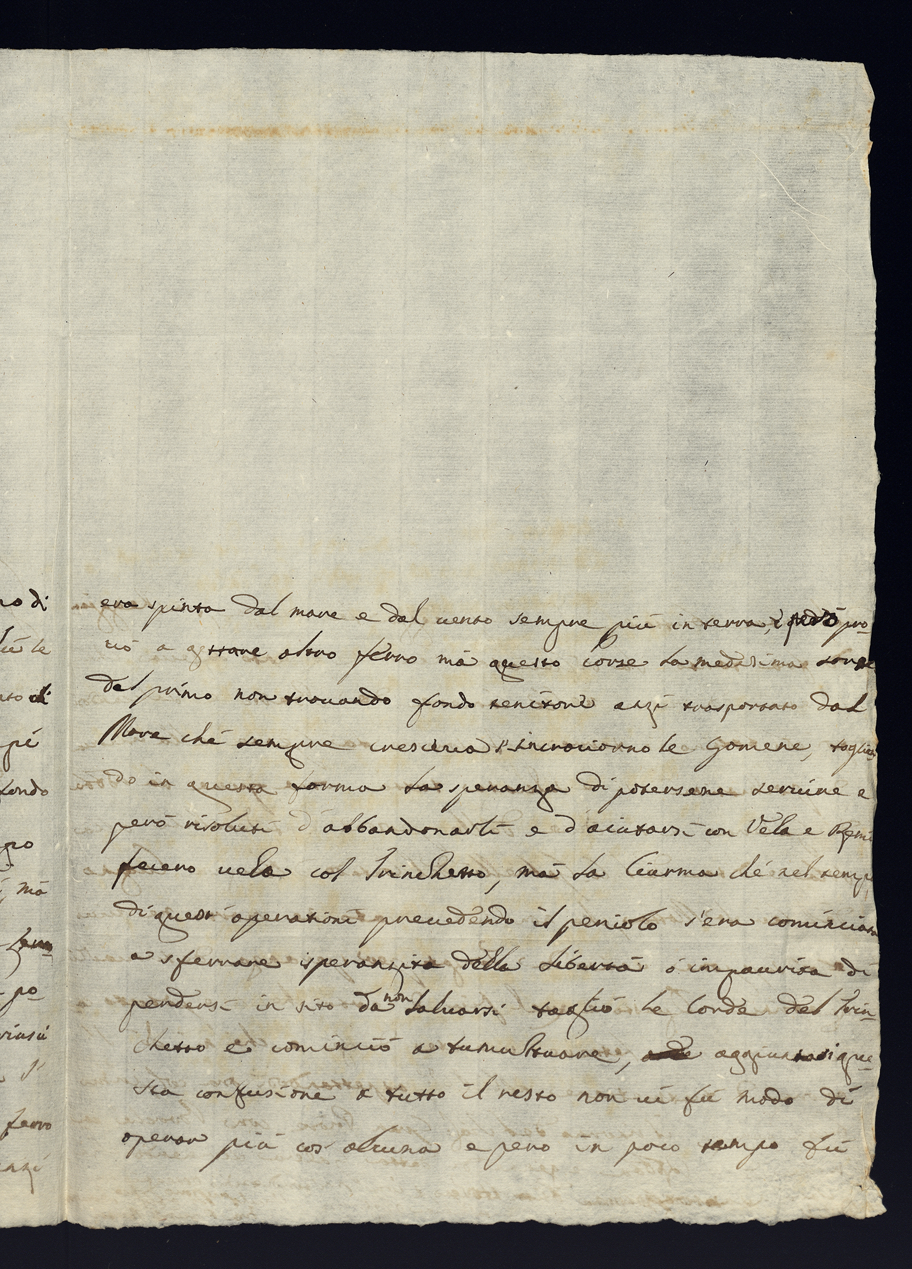 era spinta dal mare e dal uento sempre più in terra, pro-
uò a gettare altro ferro mà questo corse la medesima sorte
del primo non trouando fondo tenitore anzi trasportato dal
Mare ché sempre cresceua s'incrociorno le Gomene, toglien
do in questa forma la speranza di potersene seruire e
però risoluti d'abbandonarli e d'aiutarsi con Vela e Remi
fecero uela col Trinchetto, mà la Ciurma ché nel tempo
di questi operationi preuedendo il pericolo s'era cominciata
a sferrare speranzita della Libertà ó impaurita di
perdersi in sito da non saluarsi tagliò le Corde del Trin-
chetto e cominciò a tumultuare, aggiuntasi que-
sta confusione a tutto il resto non ui fù modo di
operar più cos alcuna e però in poco tempo fù
no di
ù le
nto di
pé
fondo
po
mà
po-
ferro
anzi